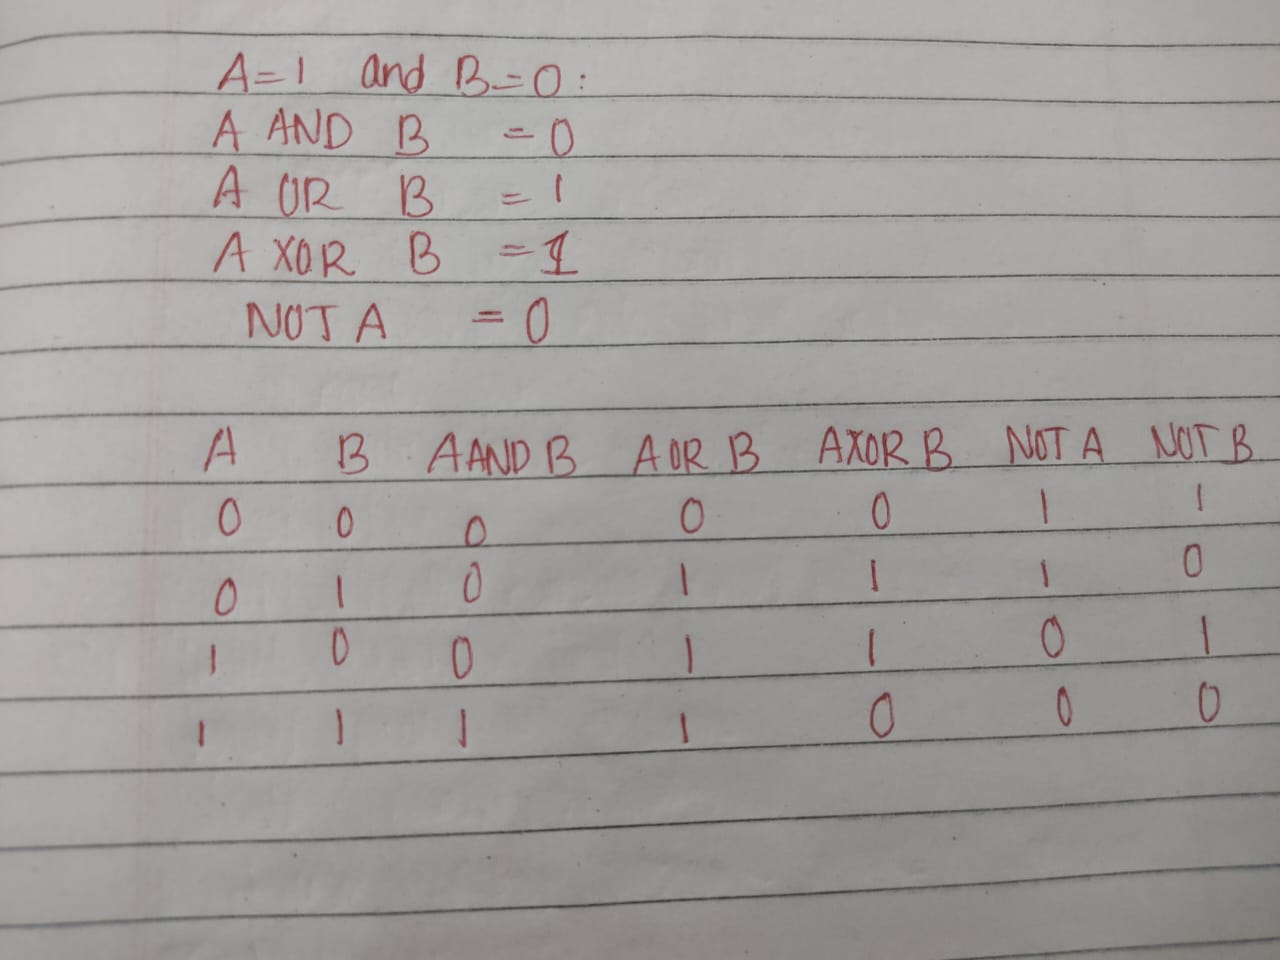 A=1 and B=0:
A AND B =0
A OR B =1
A XOR B =1
NOT A =0
A B A AND B A OR B A XOR B NOT A NOT B
0 0 0 0 0 1 1
0 1 0 1 1 1 0
1 0 0 1 1 0 1
1 1 1 1 0 0 0